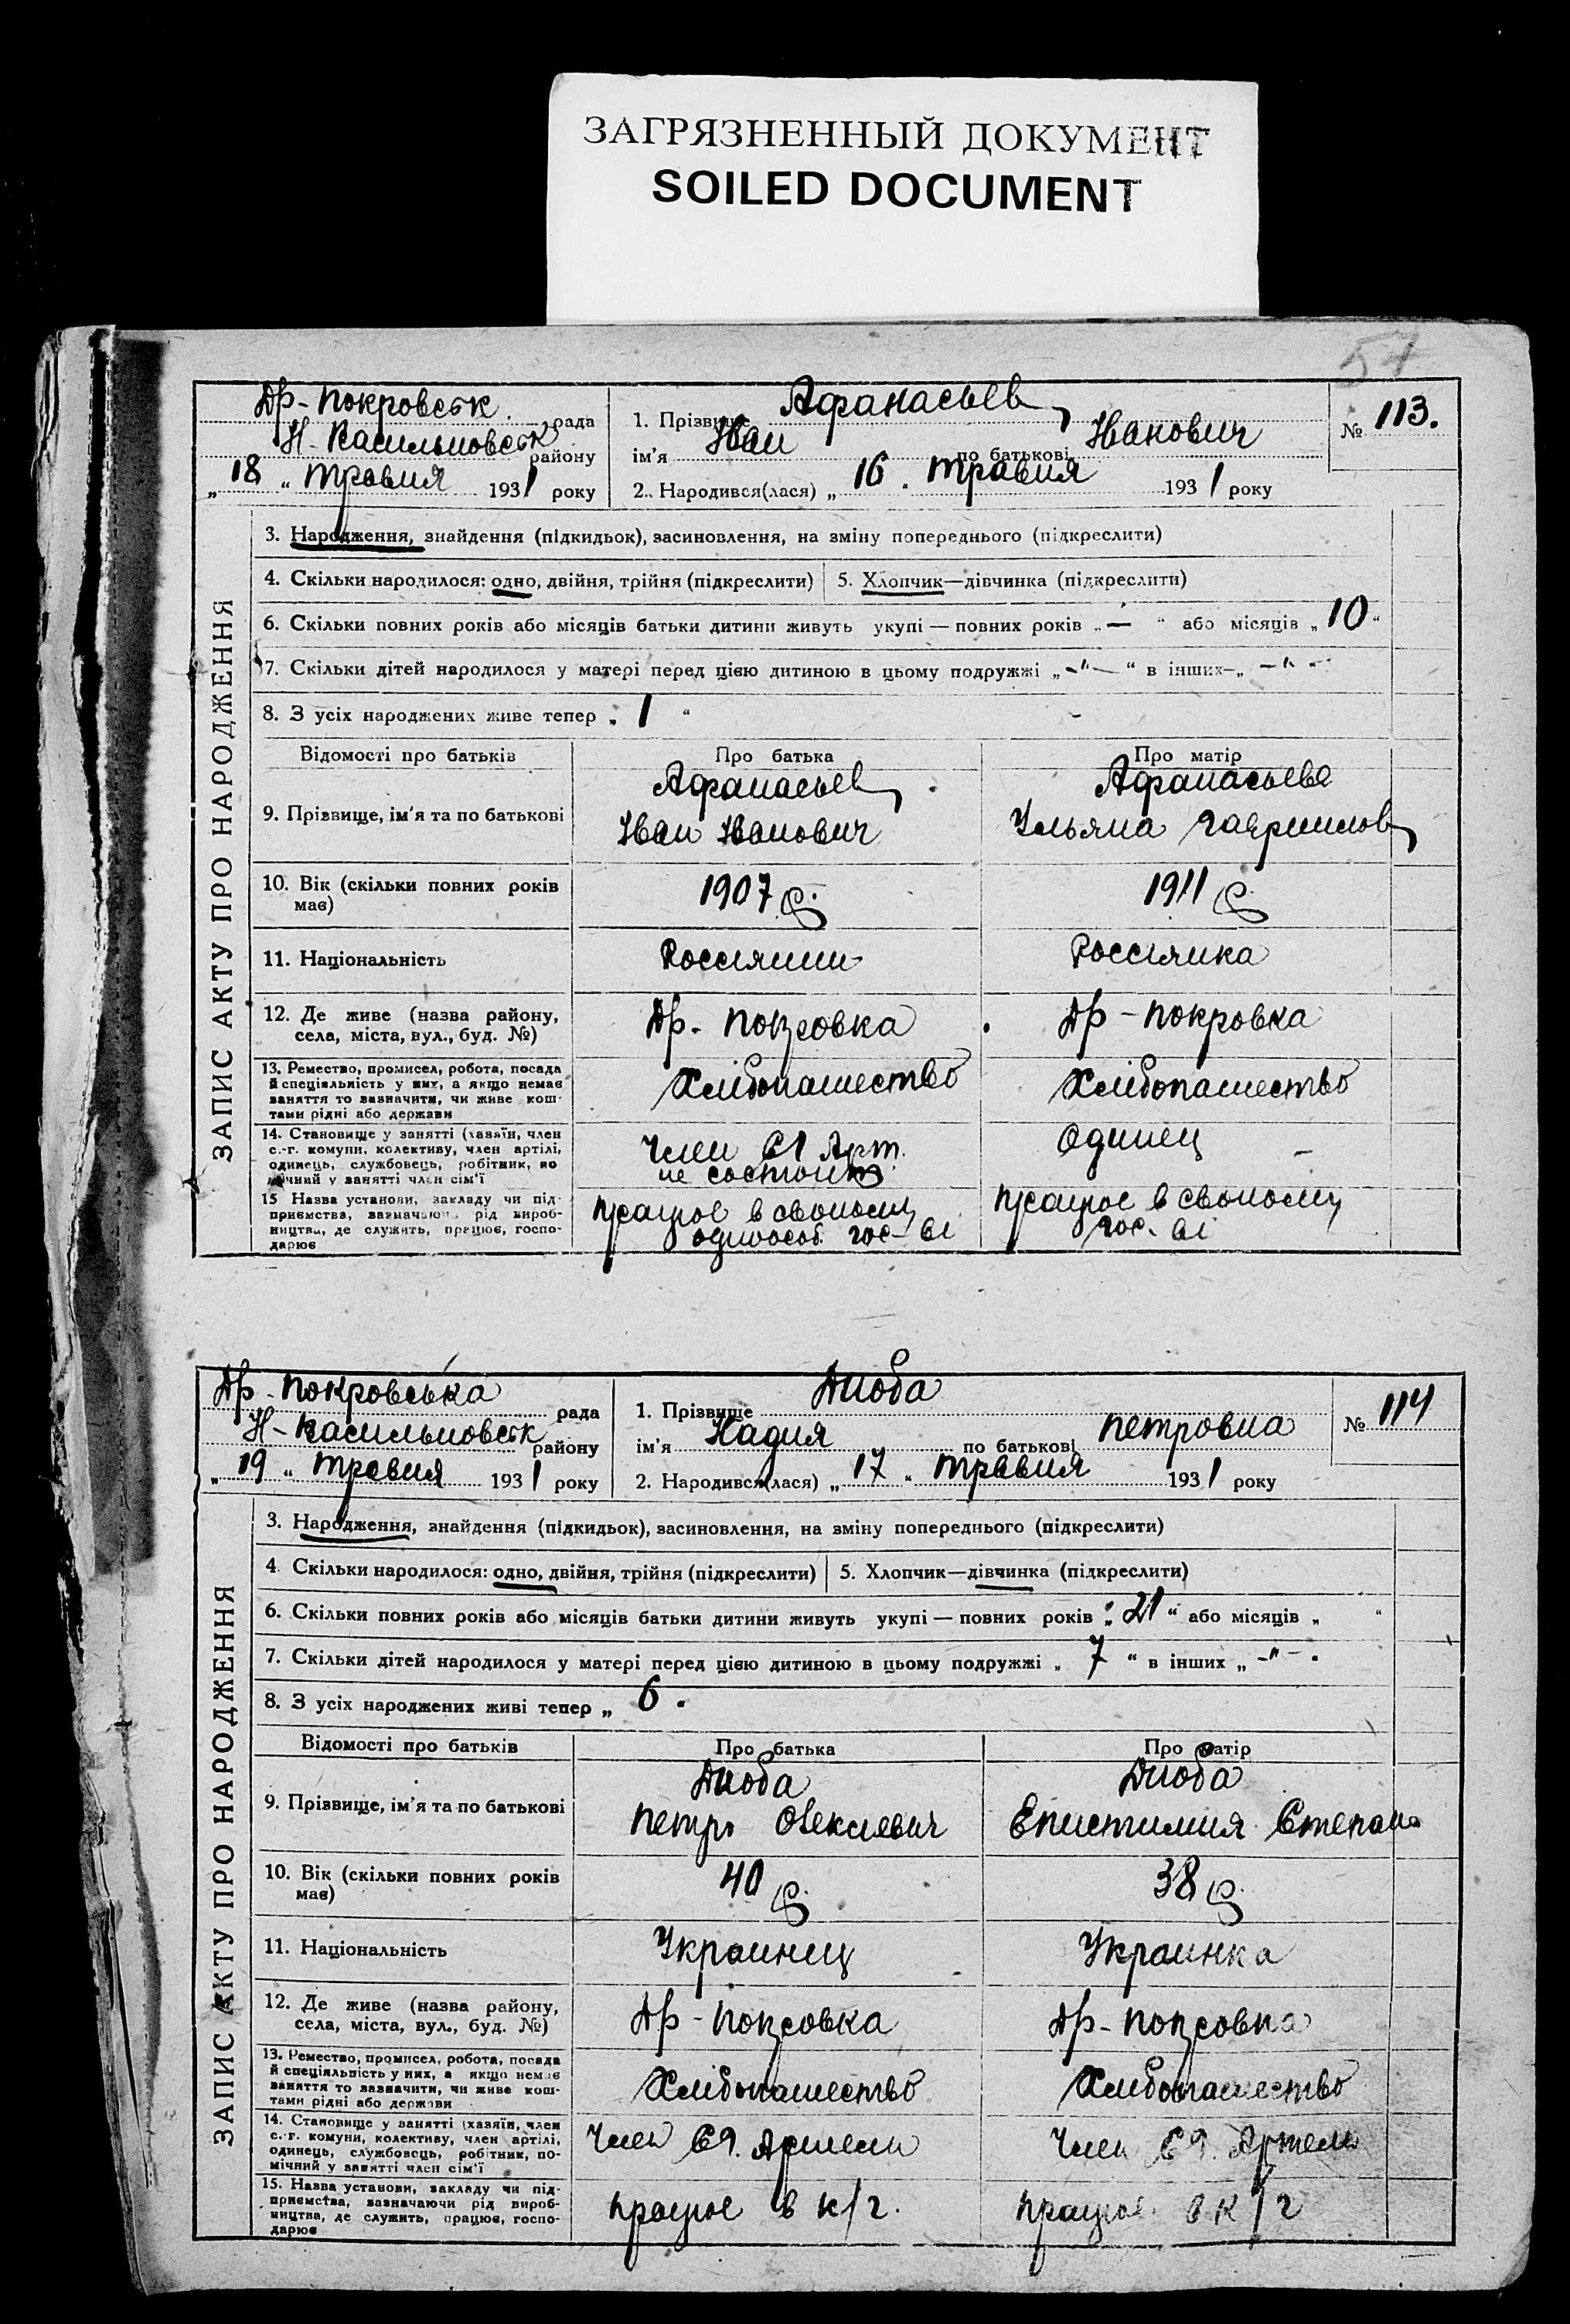 ЗАГРЯЗНЕННЫЙ ДОКУМЕНТ
SOILED DOCUMENT
57
ЗАПИС АКТУ ПРО НАРОДЖЕННЯ
Др-Покровськ. рада
Н-Васильповськ району
„18“ травня 1931 року
1. Прізвище Афанасьев
ім'я Иван по батькові Иванович
2. Народився(лася) „16„ травня 1931 року
№ 113.
3. Народження, знайдення (підкидьок), засиновлення, на зміну попереднього (підкреслити)
4. Скільки народилося: одно, двійня, трійня (підкреслити) 5. Хлопчик—дівчинка (підкреслити)
6. Скільки повних років або місяців батьки дитини живуть укупі — повних років „—“ або місяців „10“
7. Скільки дітей народилося у матері перед цією дитиною в цьому подружжі „-"—“ в інших—„ -"-
8. З усіх народжених живе тепер „1“
Відомості про батьків Про батька Про матір
9. Прізвище, ім'я та по батькові Афанасьев Иван Иванович Афанасьева Ульяна Гавриилов
10. Вік (скільки повних років має) 1907 р. 1911 р.
11. Національність Россіянин Россіянка
12. Де живе (назва району, села, міста, вул., буд. №) Др. Покровка Др-Покровка
13. Ремество, промисел, робота, посада й спеціяльність у них, а якщо немає заняття то зазначити, чи живе коштами рідні або держави Хлібопашество Хлібопашество
14. Становище у занятті (хазяїн, член с.-г. комуни, колективу, член артілі, одинець, службовець, робітник, помічний у занятті член сім'ї Член Арт. не состоит Одинец
15 Назва установи, закладу чи підприємства, зазначаючи рід виробництва, де служить, працює, господарює працює в своиому одноособ. гос-ві працює в своиому гос-ві
ЗАПИС АКТУ ПРО НАРОДЖЕННЯ
Др-Покровська рада
Н-Васильповськ району
„19“ травня 1931 року
1. Прізвище Дзюба
ім'я Надия по батькові Петровна
2. Народився(лася) „17“ травня 1931 року
№ 114
3. Народження, знайдення (підкидьок), засиновлення, на зміну попереднього (підкреслити)
4. Скільки народилося: одно, двійня, трійня (підкреслити) 5. Хлопчик—дівчинка (підкреслити)
6. Скільки повних років або місяців батьки дитини живуть укупі — повних років „21“ або місяців „ “
7. Скільки дітей народилося у матері перед цією дитиною в цьому подружжі „7“ в інших „-"-.
8. З усіх народжених живі тепер „ 6.
Відомості про батьків Про батька Про матір
9. Прізвище, ім'я та по батькові Дзюба Петро Олексіевич Дзюба Епистимия Степан
10. Вік (скільки повних років має) 40 р. 38 р.
11. Національність Украинец Украинка
12. Де живе (назва району, села, міста, вул., буд. №) Др-Покровка Др-Покровка
13. Ремество, промисел, робота, посада й спеціяльність у них, а якщо немає заняття то зазначити, чи живе коштами рідні або держави Хлібопашество Хлібопашество
14. Становище у занятті (хазяїн, член с.-г. комуни, колективу, член артілі, одинець, службовець, робітник, помічний у занятті член сім'ї Член Артели Член Артели
15. Назва установи, закладу чи підприємства, зазначаючи рід виробництва, де служить, працює, господарює працює в к/г. працює в к/г